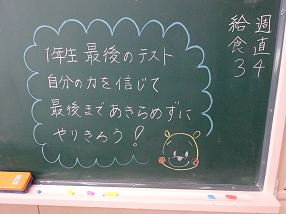 1年生 最後のテスト
自分の力を信じて
最後まであきらめずに
やりきろう!
週直 34
給食